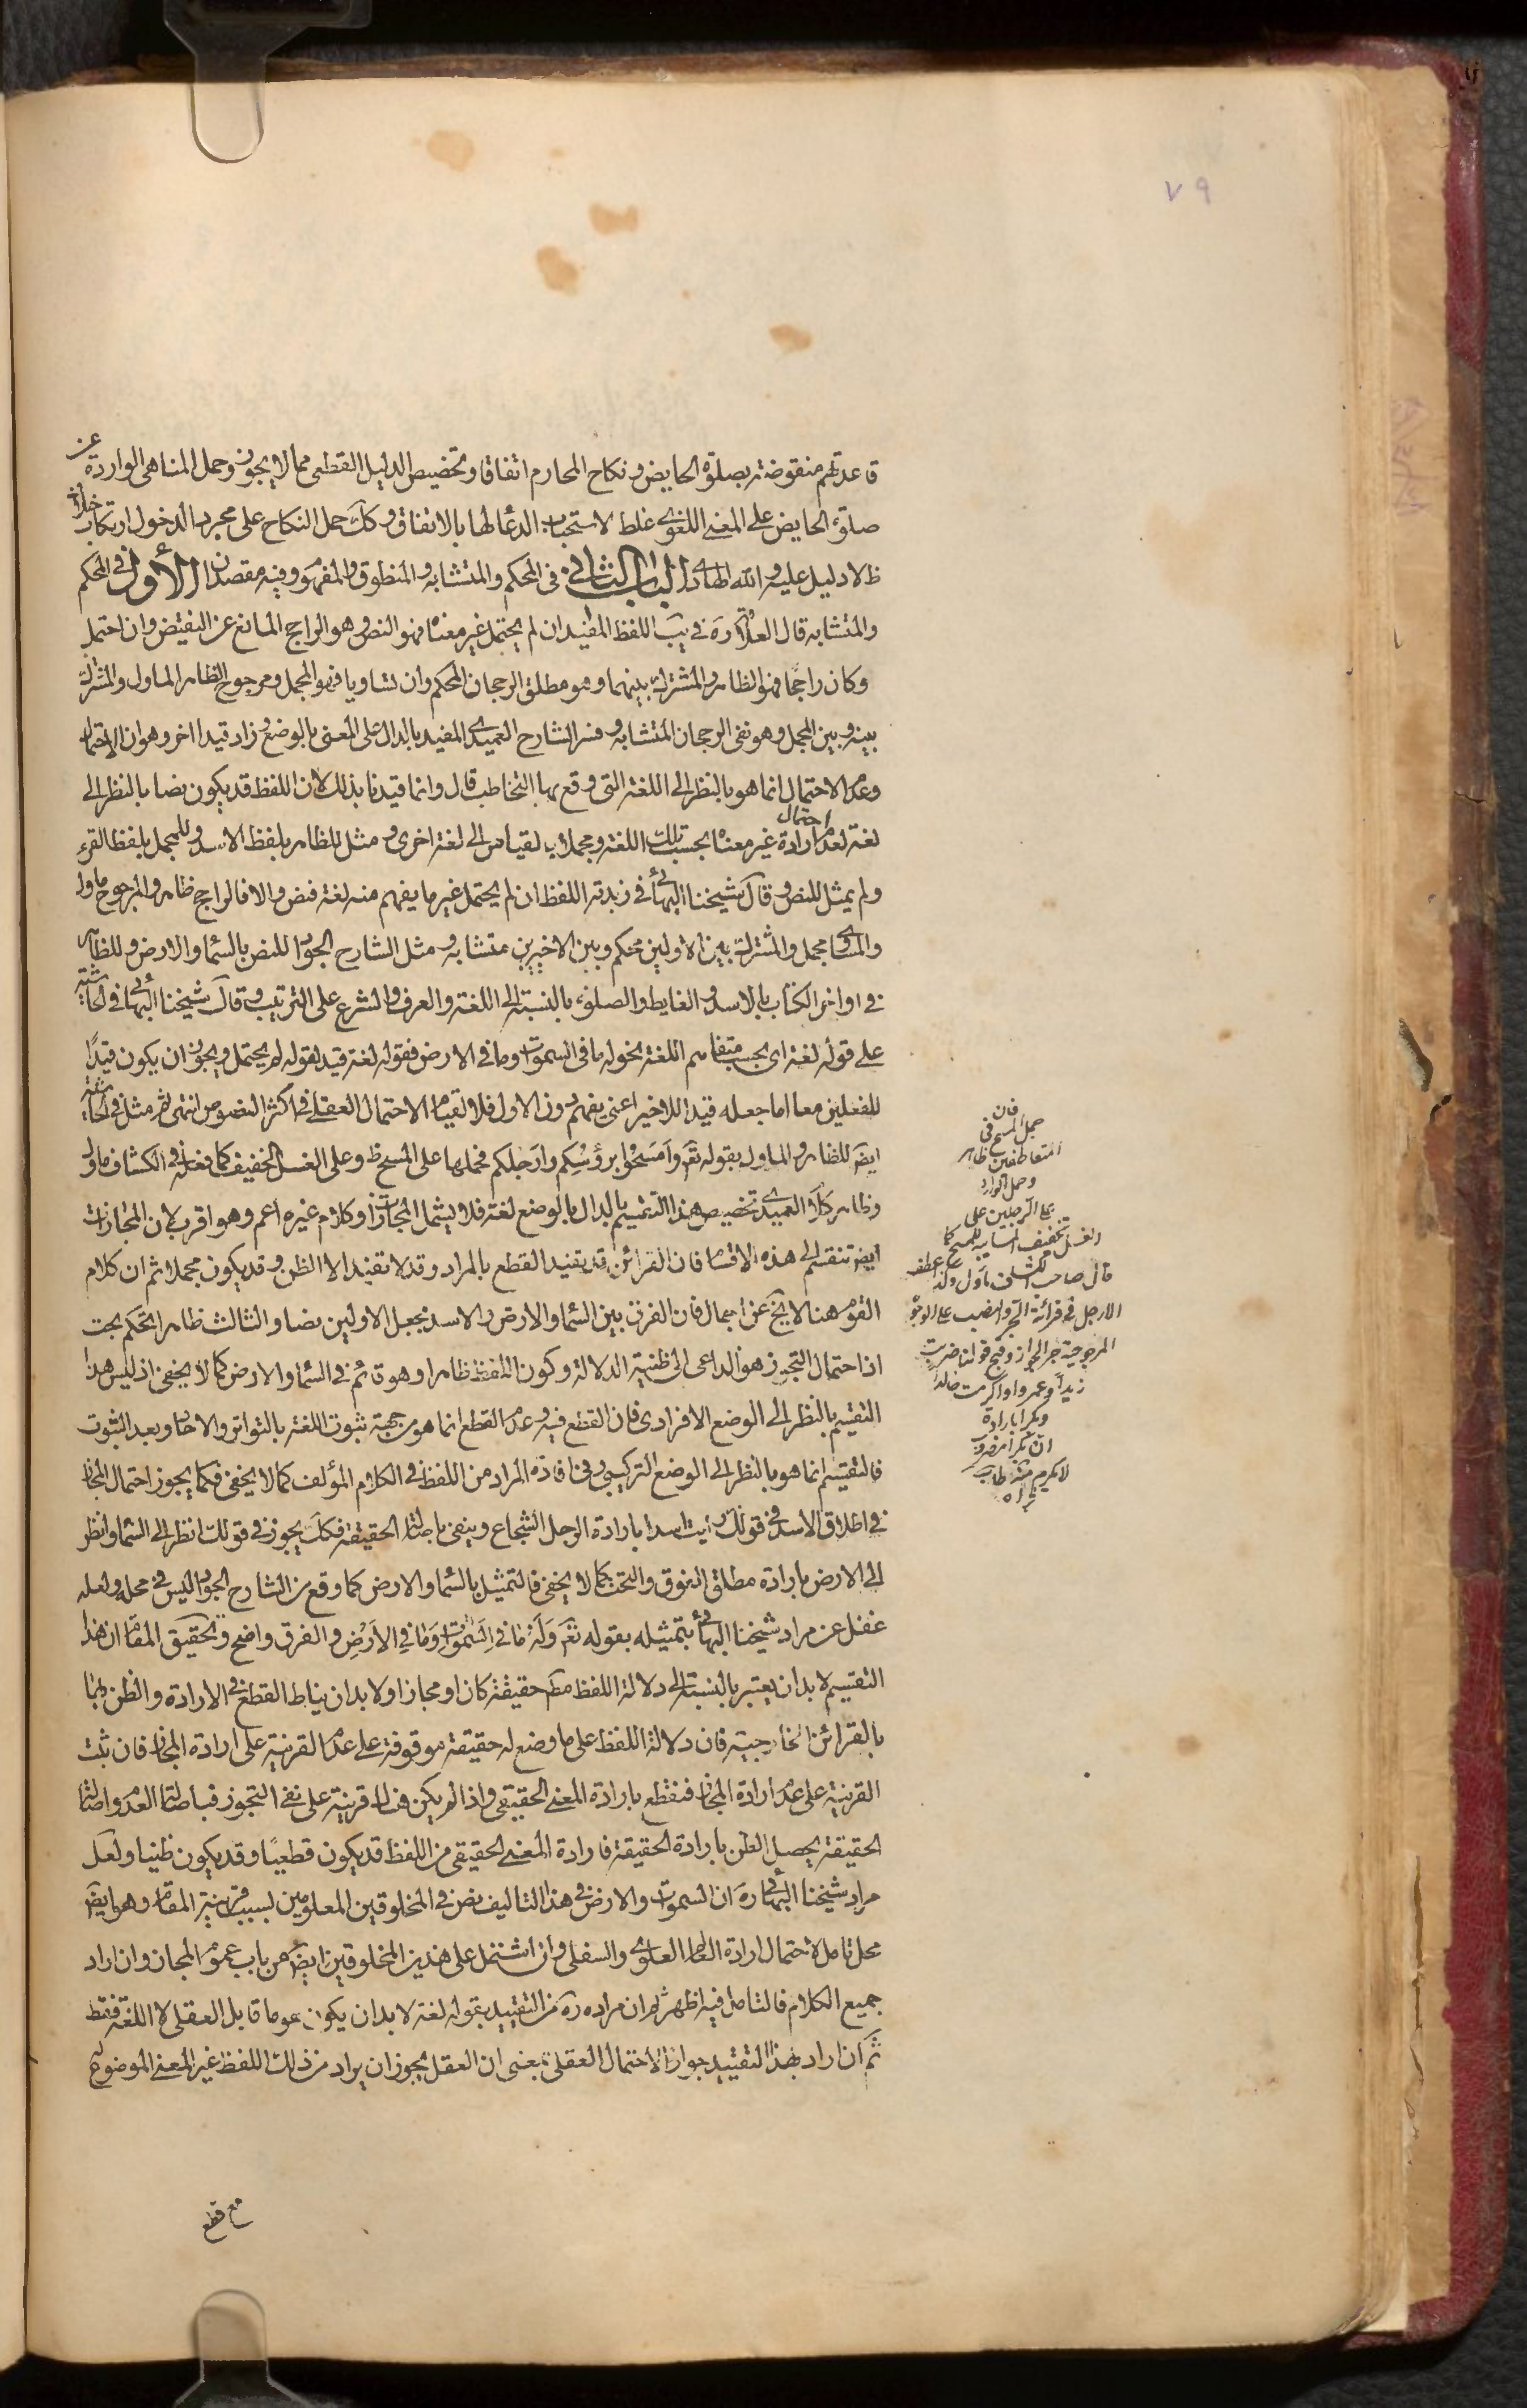 ٧٩
قاعدتهم منقوضة بصلوة الحايض ونكاح المحارم اتفاقا وتخصيص الدليل القطعى مما لا يجوز وحمل المناهى الواردة عن
صلوة الحايض على المعنى اللغوى غلط لاستحباب الدعا لها بالاتفاق وكك حمل النكاح على مجرد الدخول ارتكاب خلاف
ظ لا دليل عليه والله الهادى الباب الثانى فى المحكم والمتشابه والمنطوق والمفهوم وفيه مقصدان الأول فى المحكم
والمتشابه قال العلامة ره فى يب اللفظ المفيد ان لم يحتمل غير معناه فهو النص وهو الراجح المانع عن النقيض وان احتمل
وكان راجحا فهو الظاهر والمشترك بينهما وهو مطلق الرجحان المحكم وان تساويا فهو المجمل ومرجوح الظاهر الماول والمشترك
بينه وبين المجمل وهو نفى الرجحان المتشابه وفسر الشارح العميدى المفيد بالدال على المعنى بالوضع وزاد قيدا اخر وهو ان الاحتمال
وعدم الاحتمال انما هو بالنظر الى اللغة التى وقع بها التخاطب قال وانما قيدنا بذلك لان اللفظ قد يكون نصا بالنظر الى
لغة لعدم احتمال ارادة غير معناه بحسب تلك اللغة ومجملا بالقياس الى لغة اخرى ومثل للظاهر بلفظ الاسد وللمجمل بلفظ القرء
ولم يمثل للنص وقال شيخنا البهائى فى زبدته اللفظ ان لم يحتمل غير ما يفهم منه لغة فنص والا فالراجح ظاهر والمرجوح ماول
والمساوى مجمل والمشترك بين الاولين محكم وبين الاخيرين متشابه ومثل الشارح الجواد للنص بالسماء والارض وللظاهر
فى اواخر الكتاب بالاسد والغايط والصلوة بالنسبة الى اللغة والعرف والشرع على الترتيب وقال شيخنا البهائى فى الحاشية
على قوله لغة اى بحسب متفاهم اللغة نحو له ما فى السموات وما فى الارض فقوله لغة قيد لقوله لم يحتمل ويجوز ان يكون قيدًا
للفعلين معا اما جعله قيدا للاخير اعنى يفهم دون الاول فلا لقيام الاحتمال العقلى فى اكثر النصوص انتهى ثم مثل فى الحاشية
ايضا للظاهر والماول بقوله تعَ وَامْسَحُوا بِرُؤُسِكُم وارجلكم فحملها على المسح ظ وعلى الغسل الخفيف كما فعله فى الكشاف ماول
وظاهر كلام العميدى تخصيص هذا التقسيم بالدال بالوضع لغة فلا يشمل المجازات وكلام غيره اعم وهو اقرب لان المجازات
ايضا تنقسم الى هذه الاقسام فان القرائن قد يفيد القطع بالمراد وقد لا تفيد الا الظن وقد يكون مجملا ثم ان كلام
القوم هنا لا يخ عن اجمال فان الفرق بين السماء والارض والاسد بجعل الاولين نصا والثالث ظاهرا تحكم بحت
اذ احتمال التجوز هو الداعى الى ظنية الدلالة وكون اللفظ ظاهرا وهو قائم فى السماء والارض كما لا يخفى اذ ليس هذا
التقسيم بالنظر الى الوضع الافرادى فان القطع فيه وعدم القطع انما هو من جهة ثبوت اللغة بالتواتر والاحاد وبعد الثبوت
فالتقسيم انما هو بالنظر الى الوضع التركيبى وفى افادة المراد من اللفظ فى الكلام المؤلف كما لا يخفى فكما يجوز احتمال المجاز
فى اطلاق الاسد فى قولك رايت اسدا بارادة الرجل الشجاع وينفى باصالة الحقيقة فكك يجوز فى قولك انظر الى السماء وانظر
الى الارض بارادة مطلق الفوق والتحت كما لا يخفى فالتمثيل بالسماء والارض كما وقع من الشارح الجواد ليس فى محله ولعله
غفل عن مراد شيخنا البهائى بتمثيله بقوله تعَ وَلَهُ مَا فى السَّمواتِ وَمَا فى الاَرْضِ والفرق واضح وتحقيق المقام ان هذا
التقسيم لا بد ان يعتبر بالنسبة الى دلالة اللفظ مطم حقيقة كان او مجازا ولا بد ان يناط القطع فى الارادة والظن بها
بالقرائن الخارجية فان دلالة اللفظ على ما وضع له حقيقة موقوفة على عدم القرينة على ارادة المجاز فان ثبت
القرينة على عدم ارادة المجاز فنقطع بارادة المعنى الحقيقى واذا لم يكن هناك قرينة على نفى التجوز فباصالة العدم واصالة
الحقيقة يحصل الظن بارادة الحقيقة فارادة المعنى الحقيقى من اللفظ قد يكون قطعيًا وقد يكون ظنيا ولعل
مراد شيخنا البهائى ره ان السموات والارض فى هذا التاليف نص فى المخلوقين المعلومين بسبب قرينة المقام وهو ايضا
محل تامل لاحتمال ارادة العالم العلوى والسفلى وان اشتمل على هذين المخلوقين ايضا من باب عموم المجاز وان اراد
جميع الكلام فالتامل فيه اظهر ثم ان مراده ره من التقييد بقوله لغة لا بد ان يكون هو ما قابل العقلى لا اللغة فقط
ثم ان اراد بهذا التقييد جواز الاحتمال العقلى بمعنى ان العقل يجوز ان يراد من ذلك اللفظ غير المعنى الموضوع له
مع قطع
فان
حمل المسح فى
المتعاطفين ظاهر
وحمل الوارد
على الرجلين على
الغسل الخفيف المشابه للمسح كما
قال صاحب الكشاف ماول ولنا عطف
الارجل فى قرائة الجر والنصب على الوجوه
المرجوحية جر الجوار وقبح قولنا ضربت
زيداً وعمروا واكرمت خالدا
وبكرا بارادة
ان بكرا مضروب
لا مكرم منه طاب
ثراه